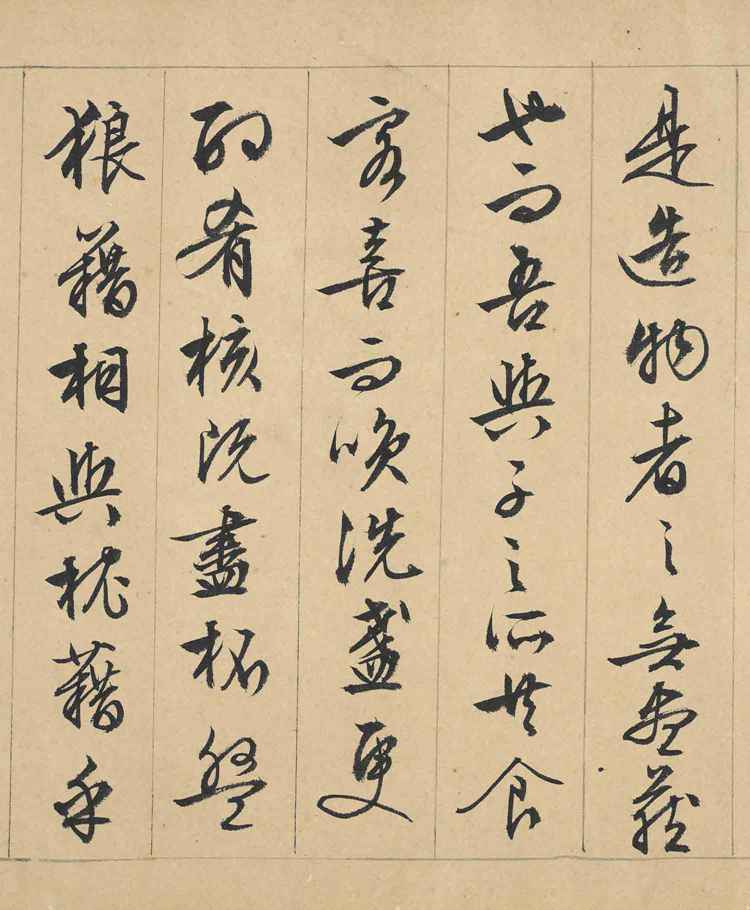 是造物者之無盡藏
也而吾與子之所共食
客喜而唤洗盞更
酌肴核既盡杯盤
狼籍相與枕藉乎